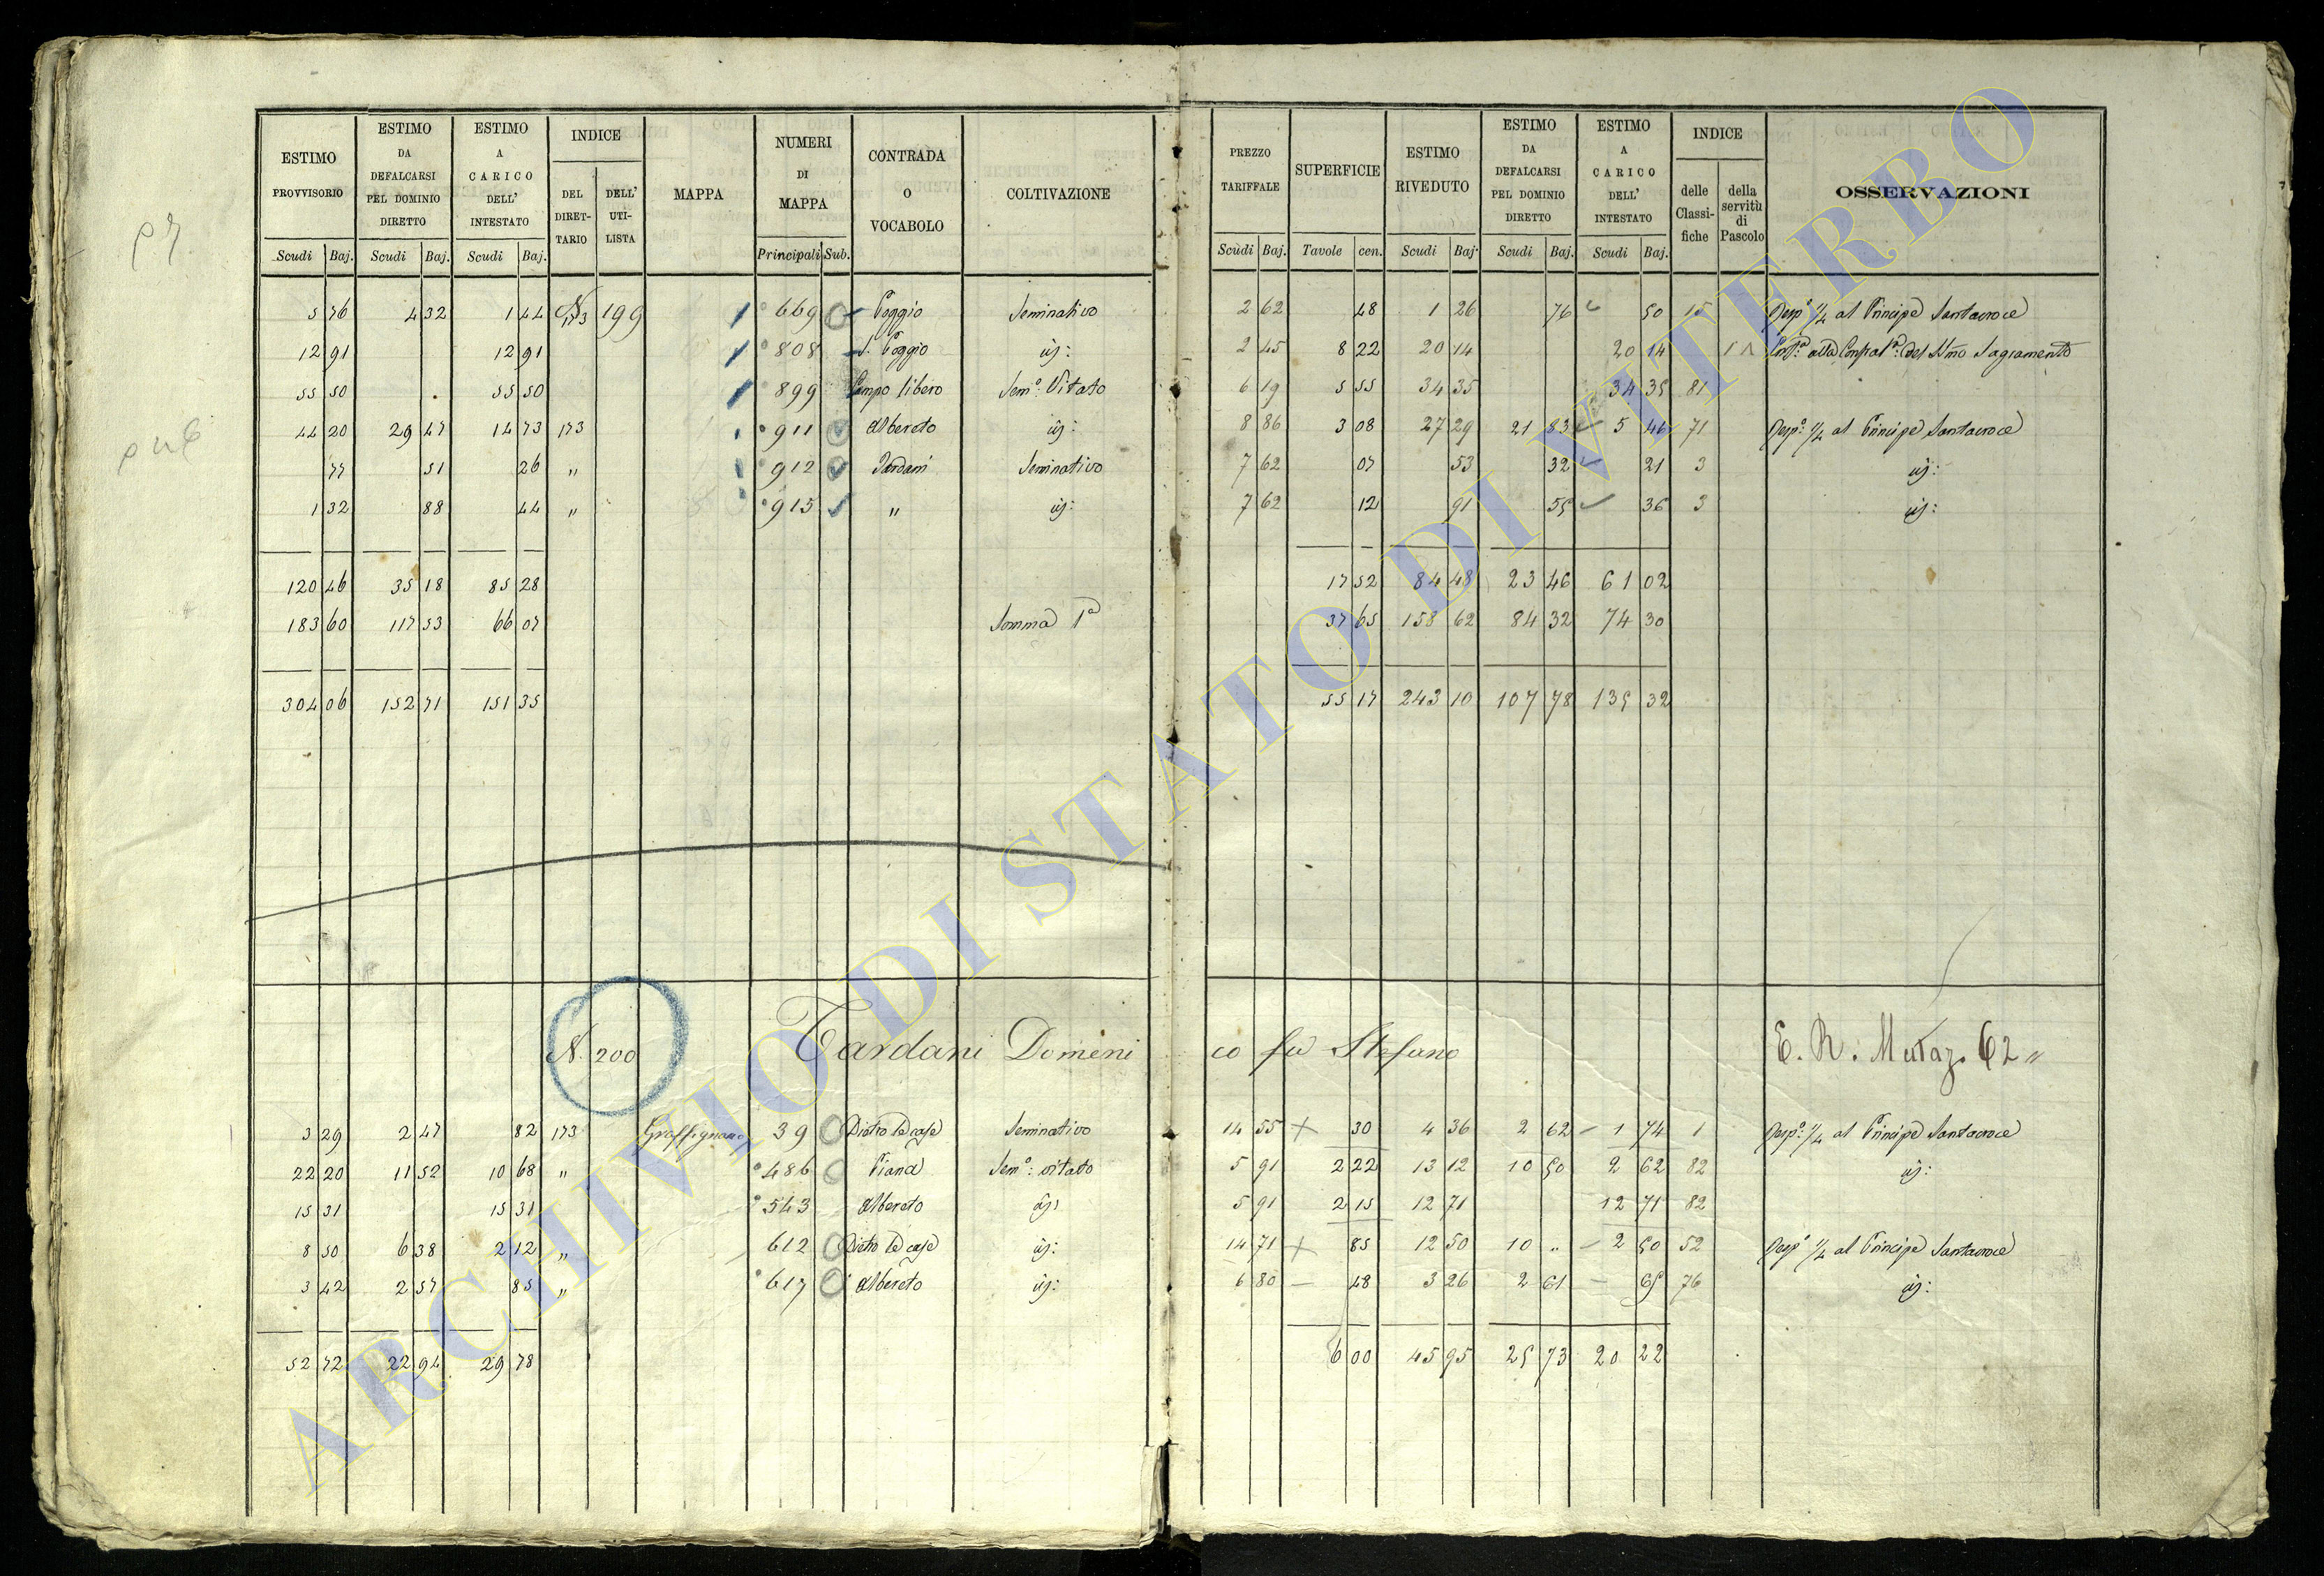 ESTIMO PROVVISORIO | ESTIMO DA DEFALCARSI PEL DOMINIO DIRETTO | ESTIMO A CARICO DELL' INTESTATO | INDICE DEL DIRETTARIO | DELL' UTILISTA | MAPPA | NUMERI DI MAPPA | CONTRADA O VOCABOLO | COLTIVAZIONE | PREZZO TARIFFALE | SUPERFICIE | ESTIMO RIVEDUTO | ESTIMO DA DEFALCARSI PEL DOMINIO DIRETTO | ESTIMO A CARICO DELL' INTESTATO | INDICE delle Classifiche | della servitù di Pascolo | OSSERVAZIONI
Scudi Baj. Scudi Baj. Scudi Baj. Principali Sub. Scudi Baj. Tavole cen. Scudi Baj. Scudi Baj. Scudi Baj.
5 76 4 32 1 44 N. 173 199 669 Poggio Seminativo 2 62 48 1 26 76 50 15 Risp.e 1/4 al Principe Santacroce
12 91 12 91 808 Poggio id: 2 45 8 22 20 14 20 14
55 50 55 50 899 Campo libero Sem.o Vitato 6 19 5 55 34 35 34 35 81
44 20 29 47 14 73 173 911 Albereto id: 8 86 3 08 27 29 21 83 5 46 71 Risp.e 1/4 al Principe Santacroce
77 51 26 " 912 Pardani Seminativo 7 62 07 53 32 21 3 id:
1 32 88 44 " 915 " id: 7 62 12 91 55 36 3 id:
120 46 35 18 85 28 17 52 84 48 23 46 61 02
183 60 117 53 66 07 Somma 1a 37 65 158 62 84 32 74 30
304 06 152 71 151 35 55 17 243 10 107 78 135 32
N. 200 Tardani Domenico fu Stefano E. R. Mutaz. 62 "
3 29 2 47 82 173 Graffignano 39 Dietro le case Seminativo 14 55 30 4 36 2 62 1 74 1 Risp.e 1/4 al Principe Santacroce
22 20 11 52 10 68 " 486 Piana Sem.o: vitato 5 91 2 22 13 12 10 50 2 62 82 id:
15 31 15 31 543 Albereto id: 5 91 2 15 12 71 12 71 82
8 50 6 38 2 12 " 612 Dietro le case id: 14 71 85 12 50 10 " 2 50 52 Risp.e 1/4 al Principe Santacroce
3 42 2 57 85 " 617 Albereto id: 6 80 48 3 26 2 61 65 76 id:
52 72 22 94 29 78 6 00 45 95 25 73 20 22
ARCHIVIO DI STATO DI VITERBO